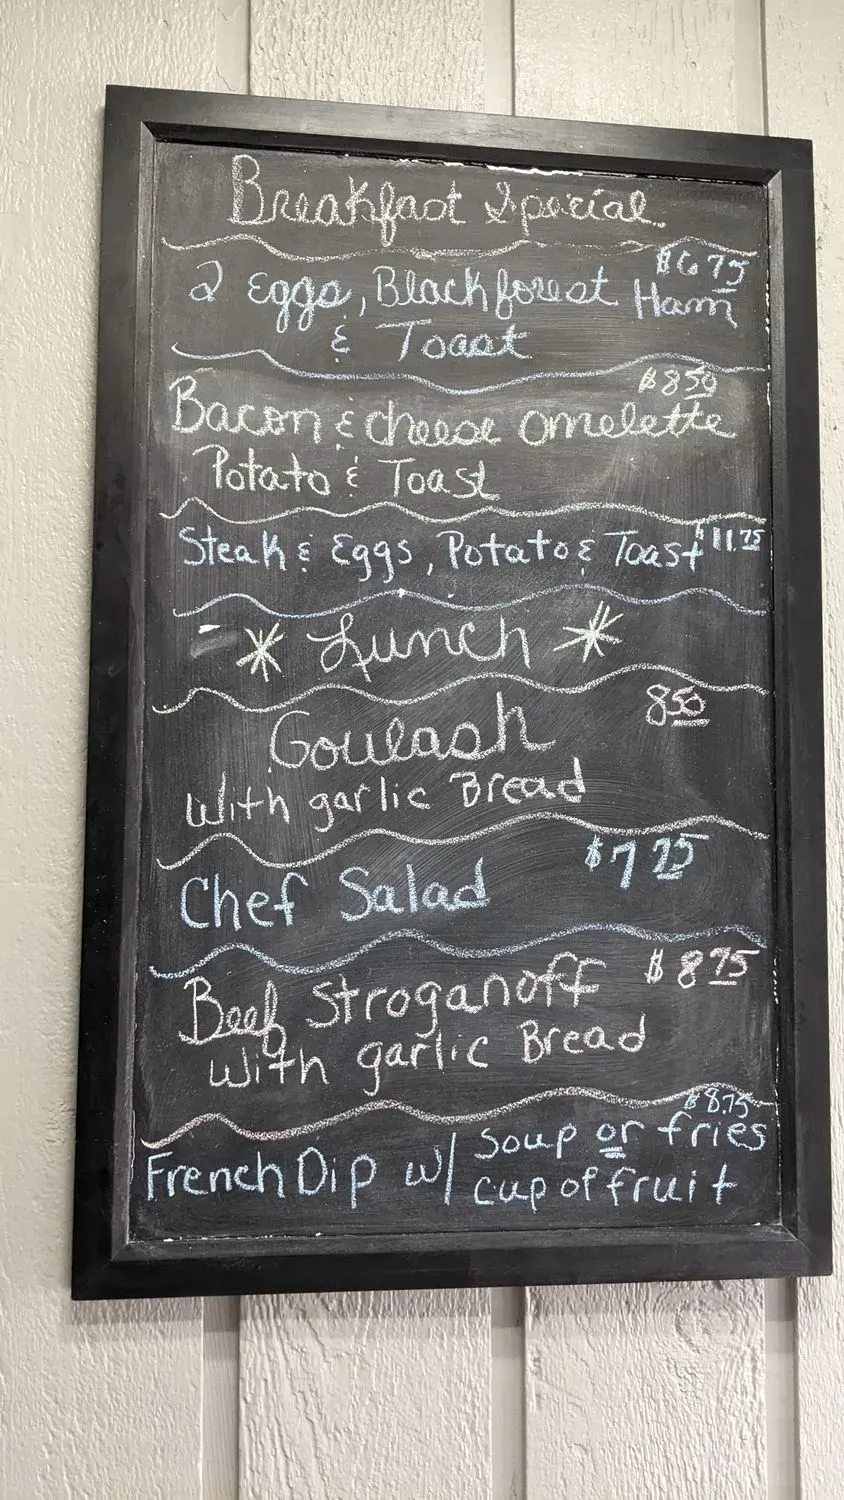 Breakfast Special
$6 75
2 Eggs, Black forest Ham
& Toast
$8 50
Bacon & cheese omelette
Potato & Toast
Steak & Eggs, Potato & Toast $11.75
* Lunch *
8 50
Goulash
With garlic Bread
$7 75
Chef Salad
$8 75
Beef Stroganoff
with garlic Bread
$8.75
French Dip w/ soup or fries
cup of fruit